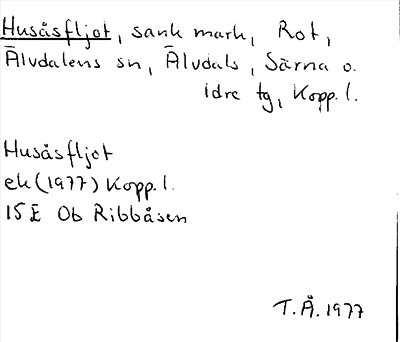 Husåsfljot, sank mark, Rot,
Älvdalens sn, Älvdals, Särna o.
Idre tg, Kopp.l.
Husåsfljot
ek (1977) Kopp.l.
15E Ob Ribbåsen
T.Å. 1977